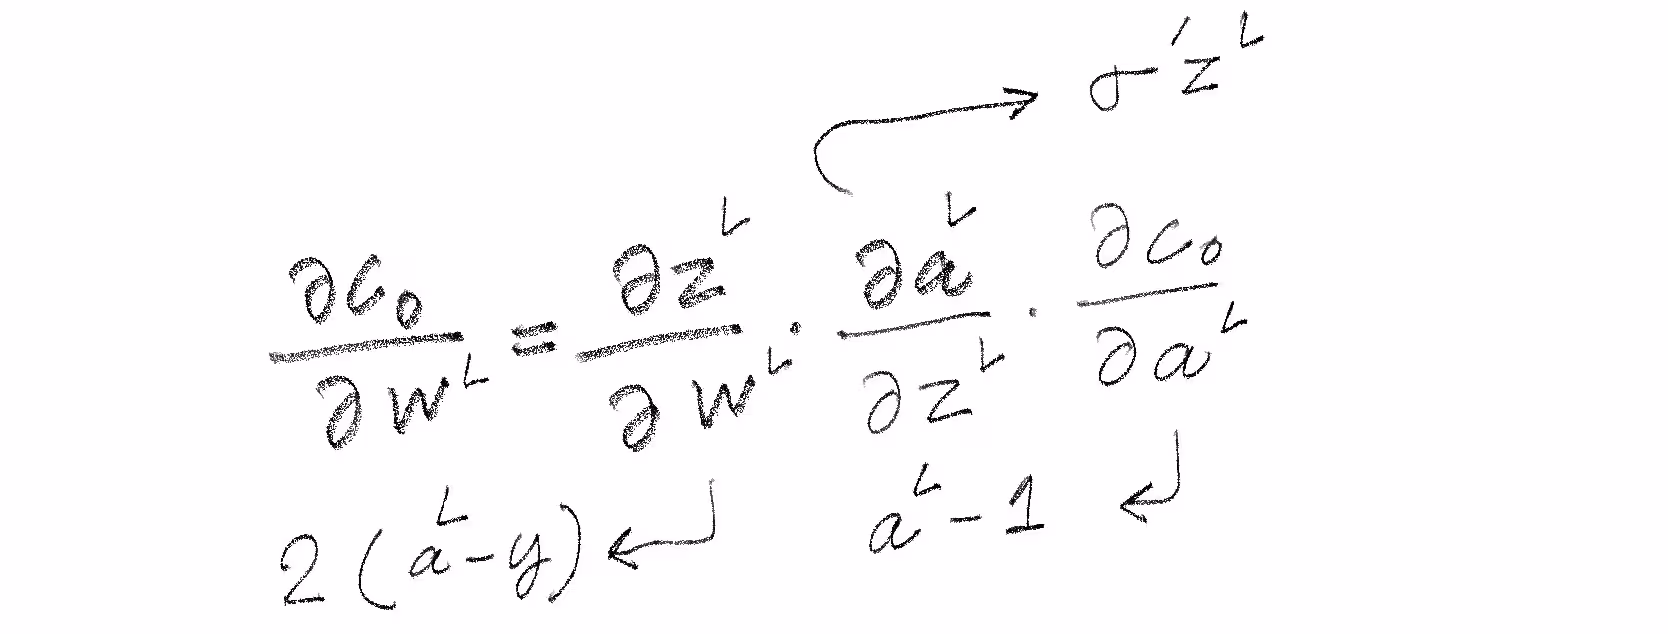 σ′z^L
∂c₀/∂w^L = ∂z^L/∂w^L · ∂a^L/∂z^L · ∂c₀/∂a^L
2(a^L-y) a^L-1